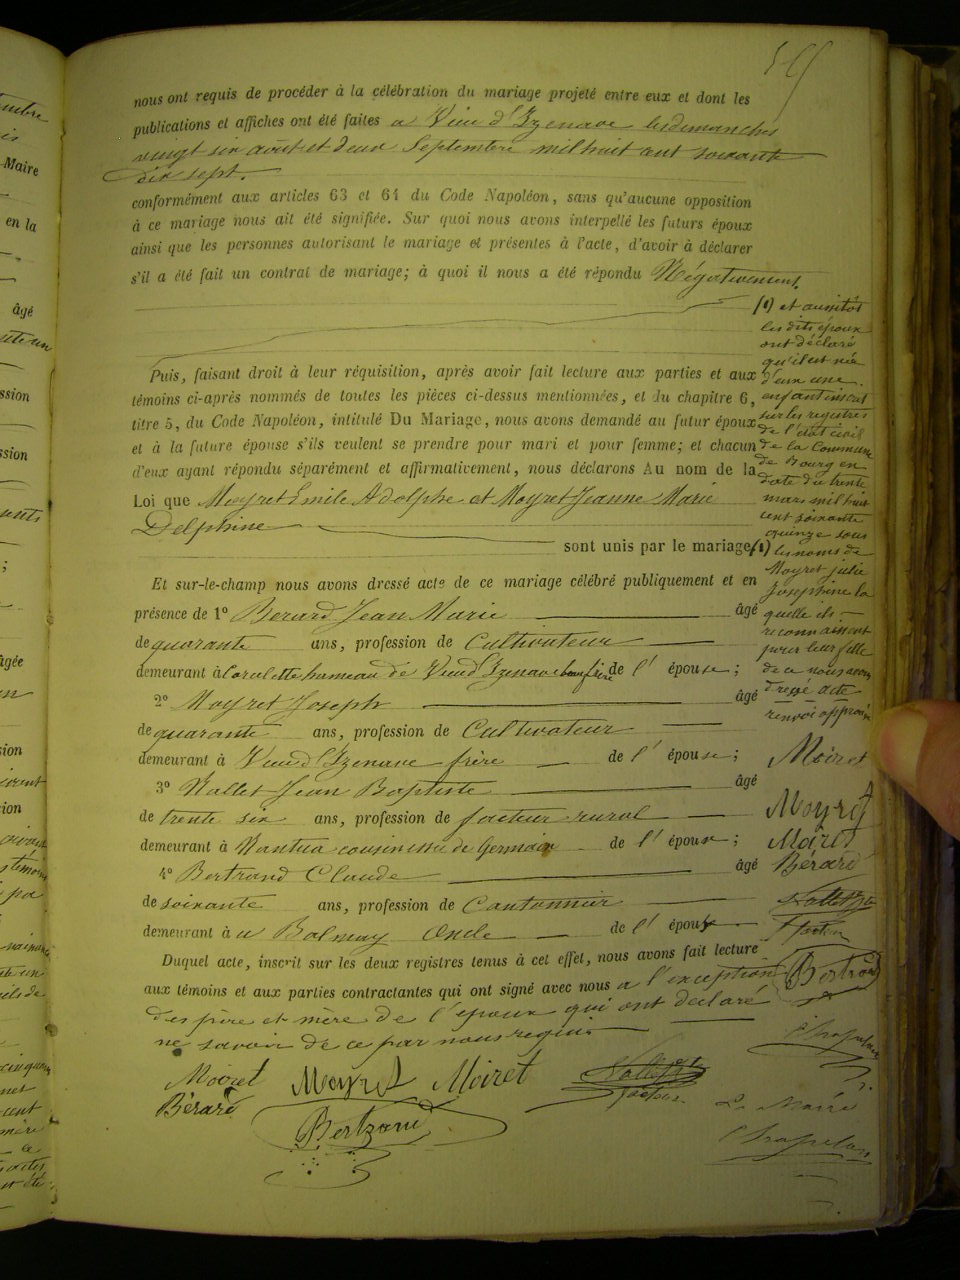 nous ont requis de procéder à la célébration du mariage projeté entre eux et dont les
publications et affiches ont été faites a Vieu d'Izenave les dimanches
vingt six aout et deux Septembre mil huit cent soixante
dix sept.
conformément aux articles 63 et 64 du Code Napoléon, sans qu'aucune opposition
à ce mariage nous ait été signifiée. Sur quoi nous avons interpellé les futurs époux
ainsi que les personnes autorisant le mariage et présentes à l'acte, d'avoir à déclarer
s'il a été fait un contrat de mariage; à quoi il nous a été répondu Négativement.
Puis, faisant droit à leur réquisition, après avoir fait lecture aux parties et aux
témoins ci-après nommés de toutes les pièces ci-dessus mentionnées, et du chapitre 6,
titre 5, du Code Napoléon, intitulé Du Mariage, nous avons demandé au futur époux
et à la future épouse s'ils veulent se prendre pour mari et pour femme; et chacun
d'eux ayant répondu séparément et affirmativement, nous déclarons Au nom de la
Loi que Moyret Emile Adolphe et Moyret Jeanne Marie
Delphine
sont unis par le mariage (1)
Et sur-le-champ nous avons dressé acte de ce mariage célébré publiquement et en
présence de 1º Berard Jean Marie âgé
de quarante ans, profession de Cultivateur
demeurant à Corcelette hameau de Vieu d'Izenave beau frère de l'épouse;
2º Moyret Joseph âgé
de quarante ans, profession de Cultivateur
demeurant à Vieu d'Izenave frère de l'épouse;
3º Nallet Jean Baptiste âgé
de trente six ans, profession de facteur rural
demeurant à Nantua cousin issu de Germain de l'époux;
4º Bertrand Claude âgé
de soixante ans, profession de Cantonnier
demeurant à a Balmay Oncle de l'époux
Duquel acte, inscrit sur les deux registres tenus à cet effet, nous avons fait lecture
aux témoins et aux parties contractantes qui ont signé avec nous a l'exception
des père et mère de l'époux qui ont déclaré
ne savoir de ce par nous requis
Moyret Moyret Moiret Nallet
Bérard Bertrand facteur
(1) et aussitôt
les dits époux
ont déclaré
qu'il est née
d'eux une
enfant inscrit
sur les registres
de l'état civil
de la Commune
de Bourg en
date du trente
mars mil huit
cent soixante
quinze sous
les noms de
Moyret julie
Josephine la
quelle ils
reconnaissent
pour leur fille
de ce nous avons
dressé acte
renvoi approuvé
Moiret
Moyret
Moiret
Bérard
Nallet
facteur
Bertrand
Chapelan
Le Maire
Chapelan